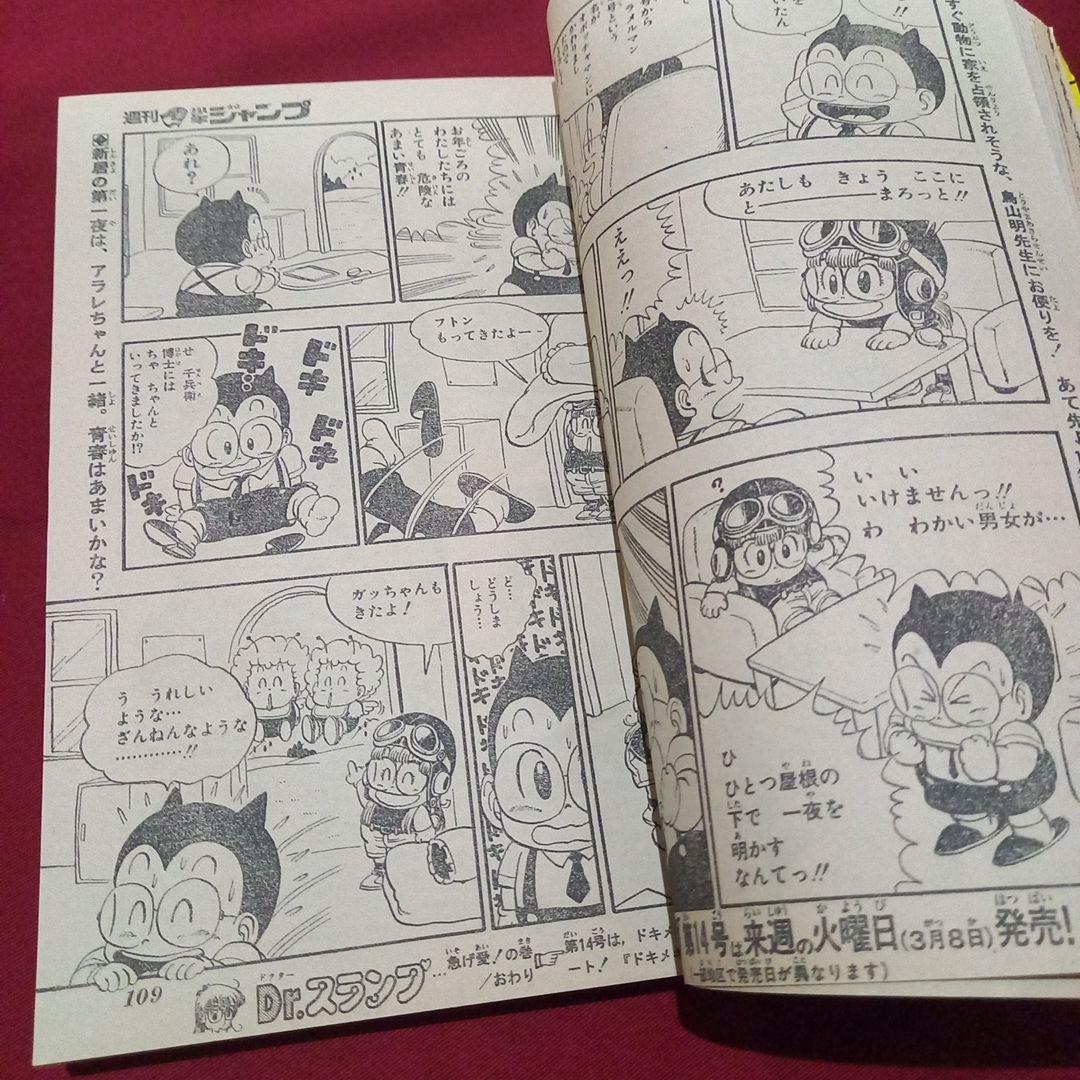 すぐ動物に家を占領されそうな、鳥山明先生にお便りを!
あて先
号から
ラメルマン
号という
名が
オボッチャマンに
かわりまし
たので
いたん
あたしも きょう ここに
と―――まろっと!!
ええっ!!
?
い い
いけませんっ!!
わ わかい男女が…
ひ
ひとつ屋根の
下で 一夜を
明かす
なんてっ!!
第14号は来週の火曜日(3月8日)発売!
(一部地区で発売日が異なります)
週刊少年ジャンプ
◆新居の第一夜は、アラレちゃんと一緒。青春はあまいかな?
お年ごろの
わたしたちには
とても 危険な
あまい青春!!
あれ?
フトン
もってきたよー
ドキ…
ドキ
ドキ
ドキ
せ 千兵衛
博士には
ちゃ ちゃんと
いってきましたか!?
ど…
どうしま
しょう…
ドキドキドキド
ドキドキ
ガッちゃんも
きたよ!
う うれしい
ような…
ざんねんなような
…………!!
109
ドクター
Dr.スランプ
…急げ愛!の巻
/おわり
☞第14号は、ドキメ
ート! 『ドキメ